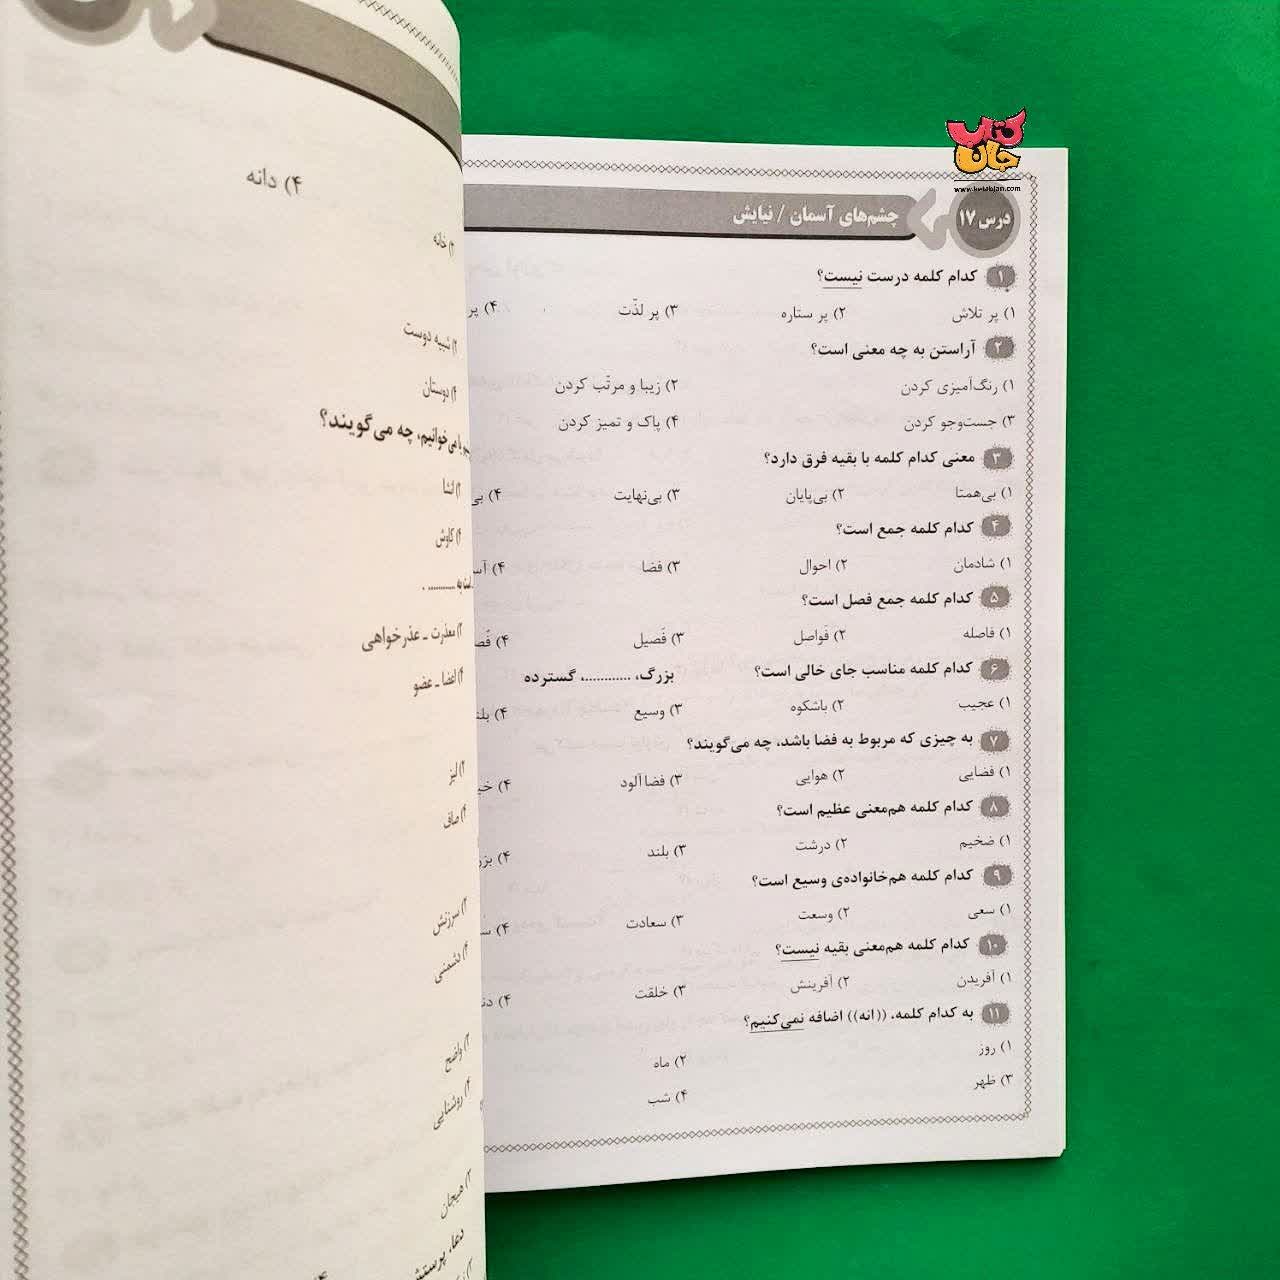 کتاب جان
www.ketabjan.com
درس ۱۷
چشم‌های آسمان / نیایش
۱ کدام کلمه درست نیست؟
۱) پر تلاش ۲) پر ستاره ۳) پر لذّت ۴) پر
۲ آراستن به چه معنی است؟
۱) رنگ‌آمیزی کردن ۲) زیبا و مرتّب کردن
۳) جست‌وجو کردن ۴) پاک و تمیز کردن
۳ معنی کدام کلمه با بقیه فرق دارد؟
۱) بی‌همتا ۲) بی‌پایان ۳) بی‌نهایت ۴) بی
۴ کدام کلمه جمع است؟
۱) شادمان ۲) احوال ۳) فضا ۴)
۵ کدام کلمه جمع فصل است؟
۱) فاصله ۲) فَواصل ۳) فَصیل ۴)
۶ کدام کلمه مناسب جای خالی است؟ بزرگ، ............، گسترده
۱) عجیب ۲) باشکوه ۳) وسیع ۴)
۷ به چیزی که مربوط به فضا باشد، چه می‌گویند؟
۱) فضایی ۲) هوایی ۳) فضاآلود ۴)
۸ کدام کلمه هم‌معنی عظیم است؟
۱) ضخیم ۲) درشت ۳) بلند ۴)
۹ کدام کلمه هم‌خانواده‌ی وسیع است؟
۱) سعی ۲) وسعت ۳) سعادت ۴)
۱۰ کدام کلمه هم‌معنی بقیه نیست؟
۱) آفریدن ۲) آفرینش ۳) خلقت ۴)
۱۱ به کدام کلمه، ((انه)) اضافه نمی‌کنیم؟
۱) روز ۲) ماه
۳) ظهر ۴) شب
۴) دانه
۲) خانه
۲) شبیه دوست
۴) دوستان
می‌خوانیم، چه می‌گویند؟
۲) انشا
۴) کاوش
است به ............ .
۲) معذرت ـ عذرخواهی
۴) اعضا ـ عضو
۲) لیز
۴) صاف
۲) سرزنش
۴) دشمنی
۲) واضح
۴) روشنایی
۲) هیجان
دعا، پرستش